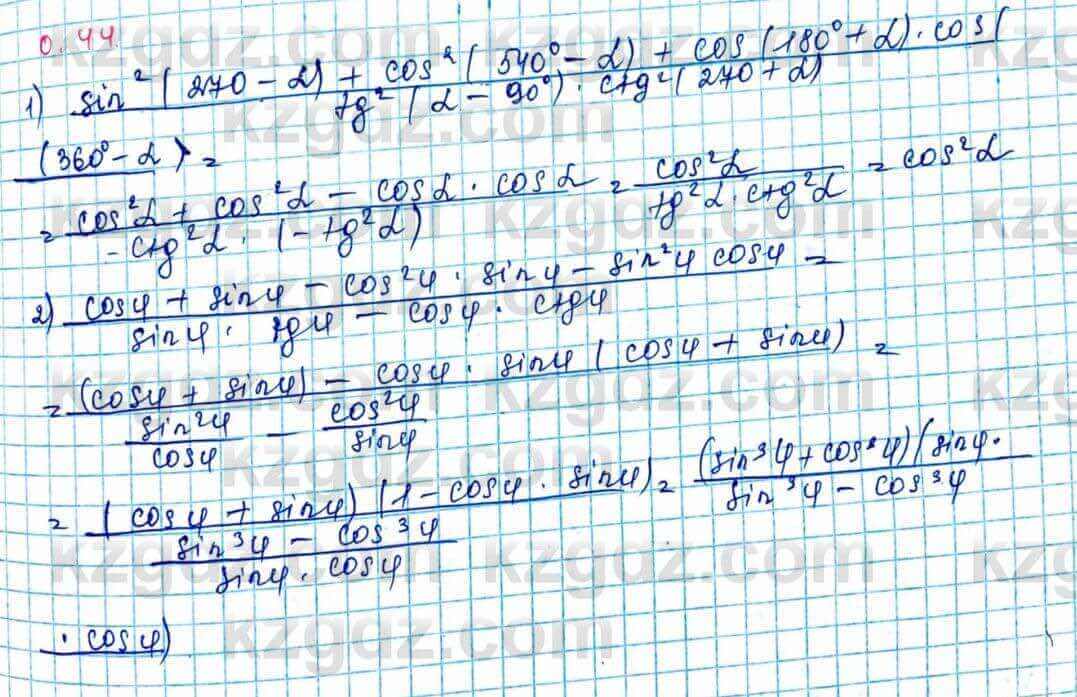 0.44.
1) sin²(270 - α) + cos²(540° - α) + cos(180° + α) · cos(
tg²(α - 90°) · ctg²(270 + α)
(360° - α) =
= cos²α + cos²α - cosα · cosα = cos²α = cos²α
-ctg²α · (-tg²α) tg²α · ctg²α
2) cosφ + sinφ - cos²φ · sinφ - sin²φ cosφ =
sinφ · tgφ - cosφ · ctgφ
= (cosφ + sinφ) - cosφ · sinφ (cosφ + sinφ) =
sin²φ - cos²φ
cosφ sinφ
= (cosφ + sinφ)(1 - cosφ · sinφ) = (sin³φ + cos³φ)(sinφ ·
sin³φ - cos³φ sin³φ - cos³φ
sinφ · cosφ
· cosφ)
kzgdz.com